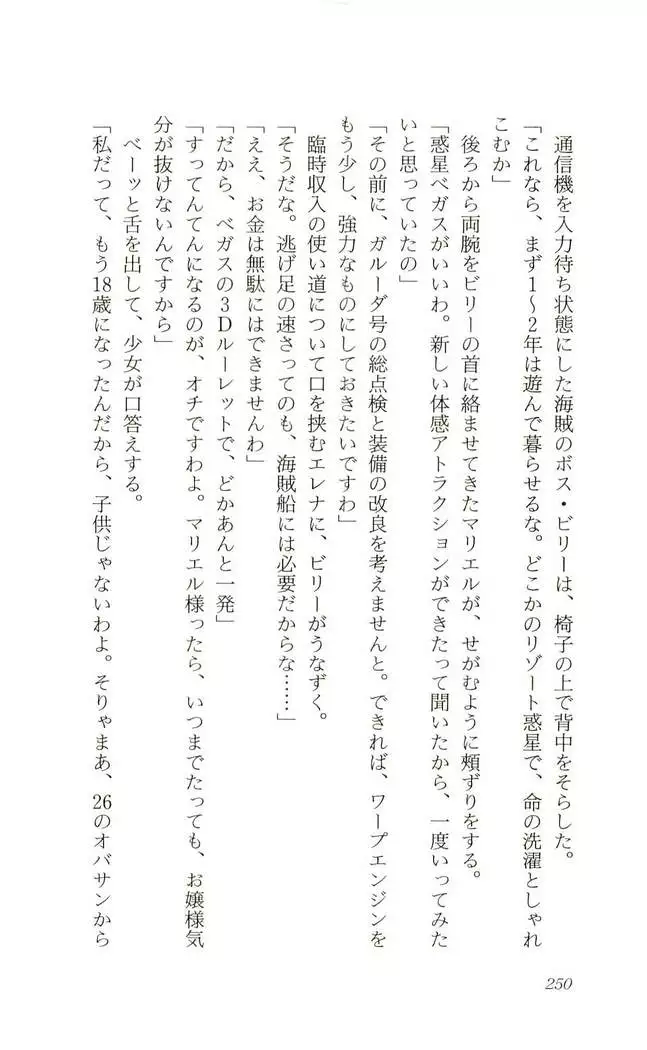 通信機を入力待ち状態にした海賊のボス・ビリーは、椅子の上で背中をそらした。
「これなら、まず１～２年は遊んで暮らせるな。どこかのリゾート惑星で、命の洗濯としゃれ
こむか」
後ろから両腕をビリーの首に絡ませてきたマリエルが、せがむように頬ずりをする。
「惑星ベガスがいいわ。新しい体感アトラクションができたって聞いたから、一度いってみた
いと思っていたの」
「その前に、ガルーダ号の総点検と装備の改良を考えませんと。できれば、ワープエンジンを
もう少し、強力なものにしておきたいですわ」
臨時収入の使い道について口を挟むエレナに、ビリーがうなずく。
「そうだな。逃げ足の速さってのも、海賊船には必要だからな……」
「ええ、お金は無駄にはできませんわ」
「だから、ベガスの３Ｄルーレットで、どかあんと一発」
「すってんてんになるのが、オチですわよ。マリエル様ったら、いつまでたっても、お嬢様気
分が抜けないんですから」
ベーッと舌を出して、少女が口答えする。
「私だって、もう18歳になったんだから、子供じゃないわよ。そりゃまあ、26のオバサンから
250